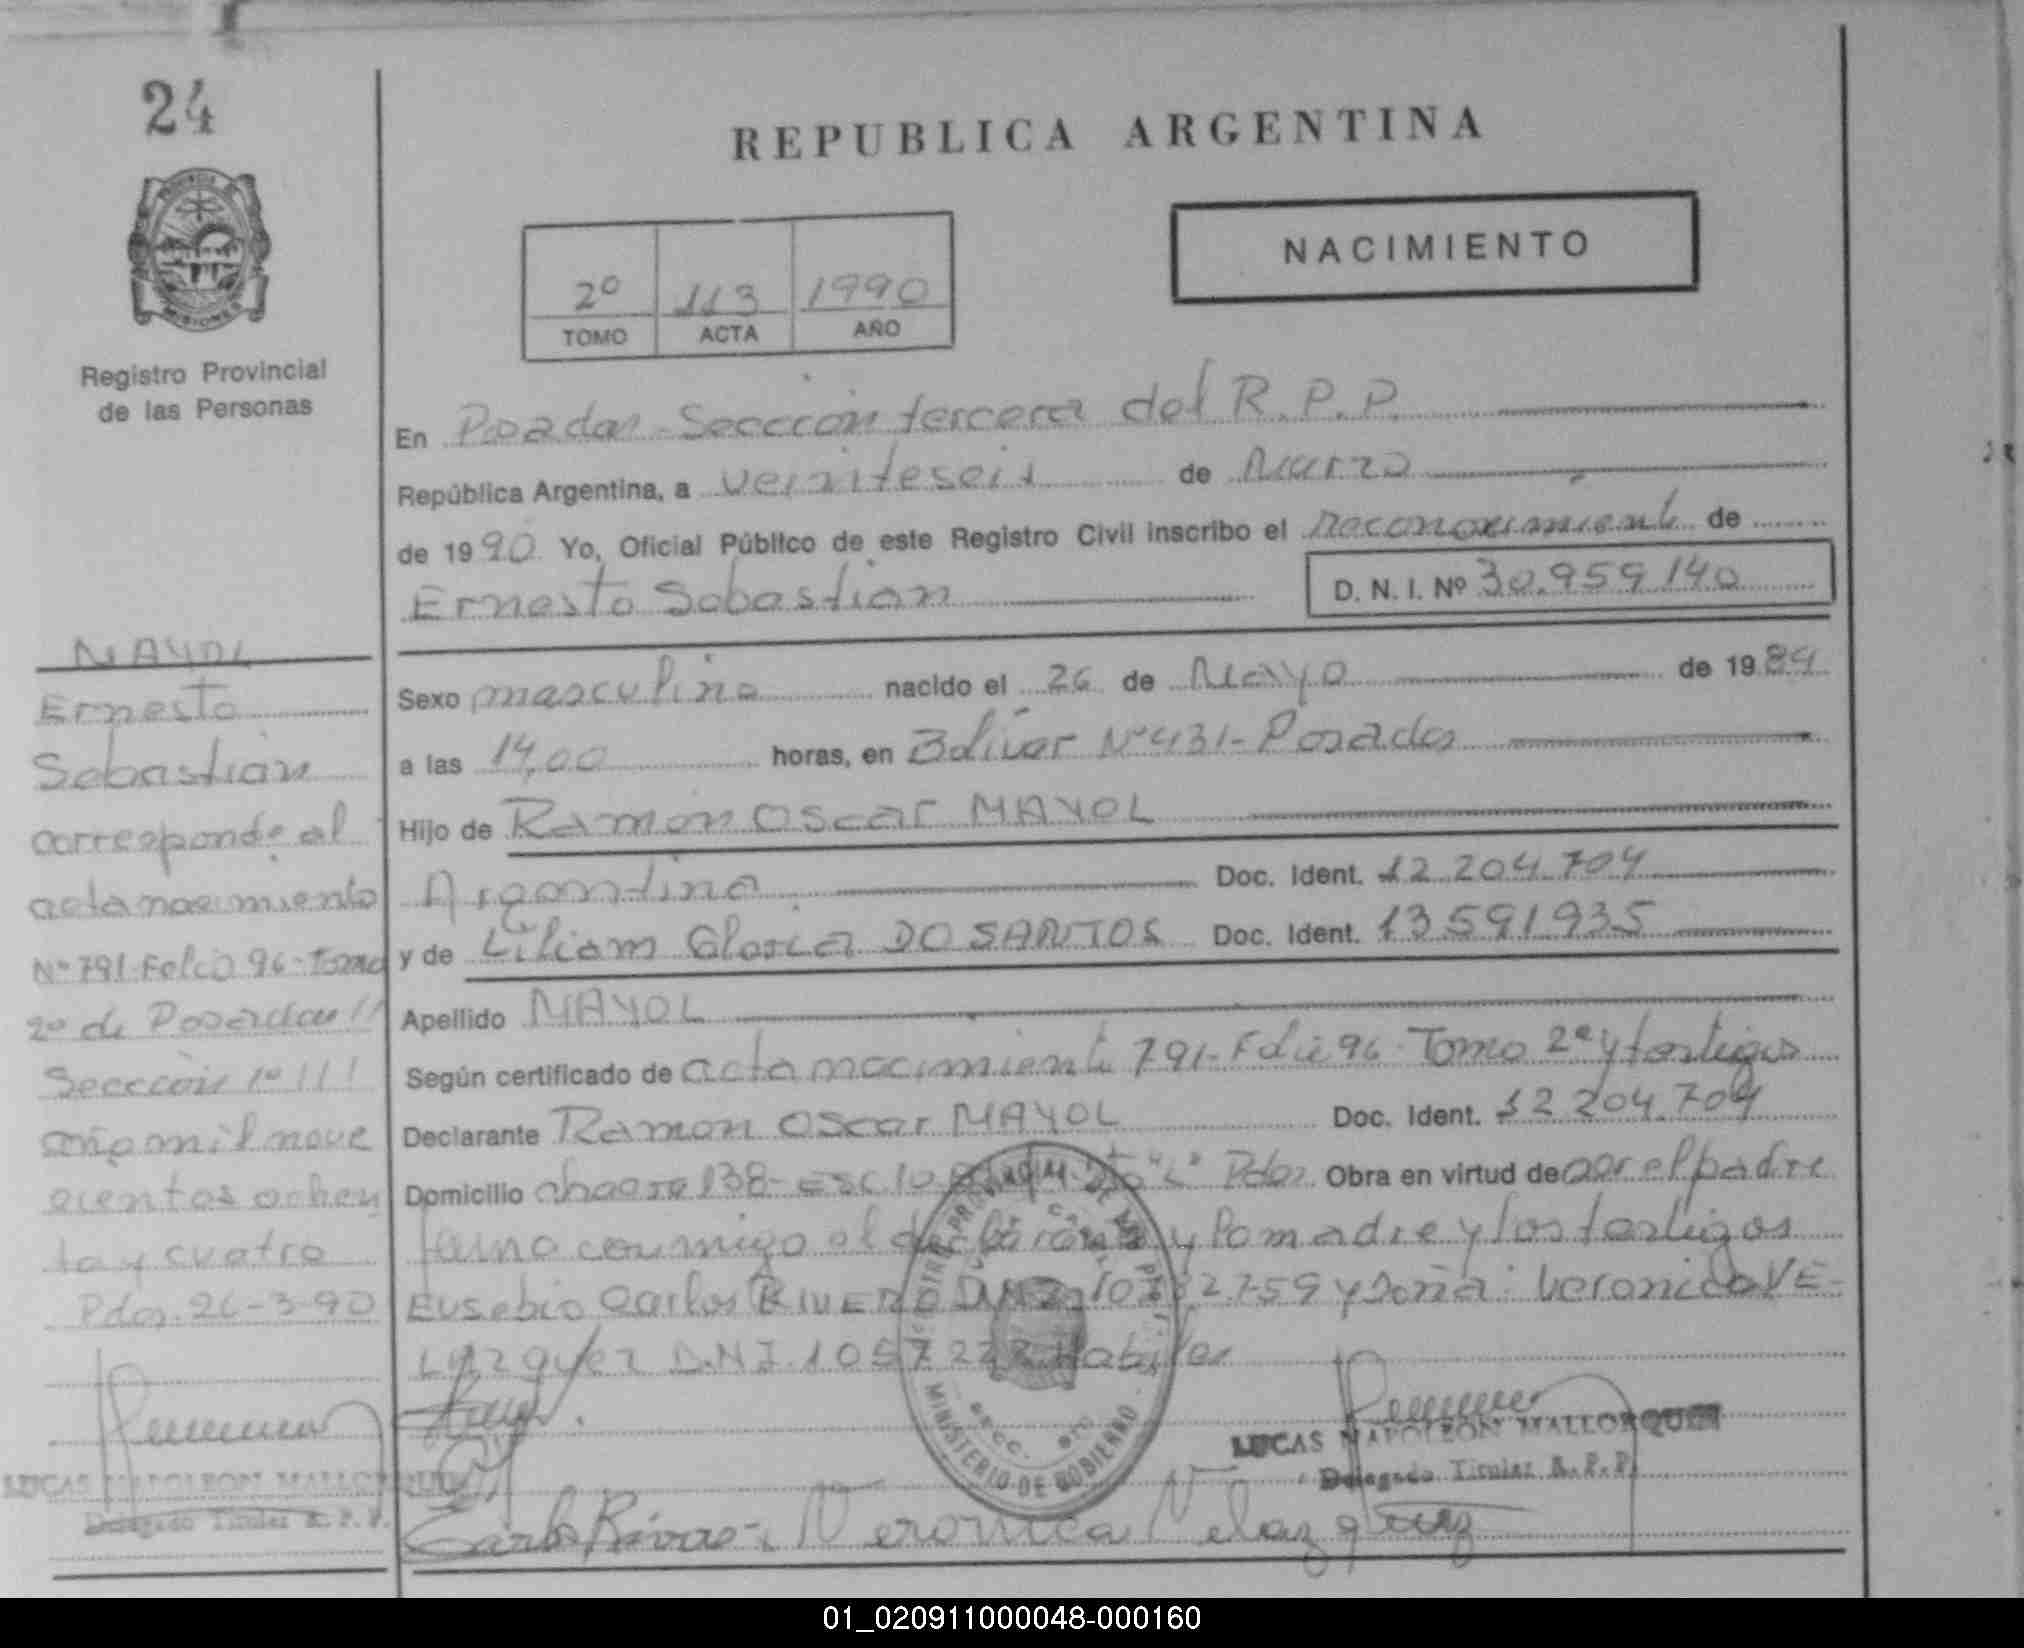 24
REPUBLICA ARGENTINA
NACIMIENTO
2º 113 1990
TOMO ACTA AÑO
PROVINCIA DE
MISIONES
Registro Provincial
de las Personas
En Posadas - Seccción tercera del R.P.P.
República Argentina, a veinteseis de Marzo
de 1990 Yo, Oficial Público de este Registro Civil inscribo el de
Ernesto Sebastian D. N. I. Nº 30.959.140
Sexo masculino nacido el 26 de Mayo de 1984
a las 14,00 horas, en Bolivar Nº 431 - Posadas
Hijo de Ramón Oscar MAYOL
Argentino Doc. Ident. 12 204.704
y de Liliam Gloria DO SANTOS Doc. Ident. 13591935
Apellido MAYOL
Según certificado de acta nacimiento 791 - Folio 96 - Tomo 2º y testigos
Declarante Ramon Oscar MAYOL Doc. Ident. 12 204.704
Domicilio chacra 138 - ESC 10 Pdas. Obra en virtud de ser el padre
conmigo el declarante y la madre y los testigos
Eusebio Carlos y Doña: Veronica VE-
D.N.I. Habiles
MAYOL
Ernesto
Sebastián
corresponde al
acta nacimiento
Nº 791 Folio 96 - Tomo
2º de Posadas //
Seccción 1º ///
año mil nove
cientos ochen
ta y cuatro
Pdas. 26-3-90
LUCAS NAPOLEON MALLORQUIN
Delegado Titular R.P.P.
LUCAS NAPOLEON MALLORQUIN
Delegado Titular R.P.P.
MINISTERIO DE GOBIERNO
Veronica Velazquez
01_020911000048-000160